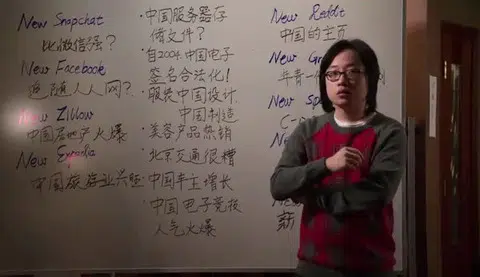 New Snapchat
比微信强?
New Facebook
追随人人网?
New Zillow
中国房地产火爆
New Expedia
中国旅游业兴旺
·中国服务器存
储文件?
·自2004中国电子
签名合法化!
·服装中国设计,
中国制造
·美容产品热销
·北京交通很糟
·中国车主增长
·中国电子竞技
人气火爆
New Reddit
中国的主页
New
New
New